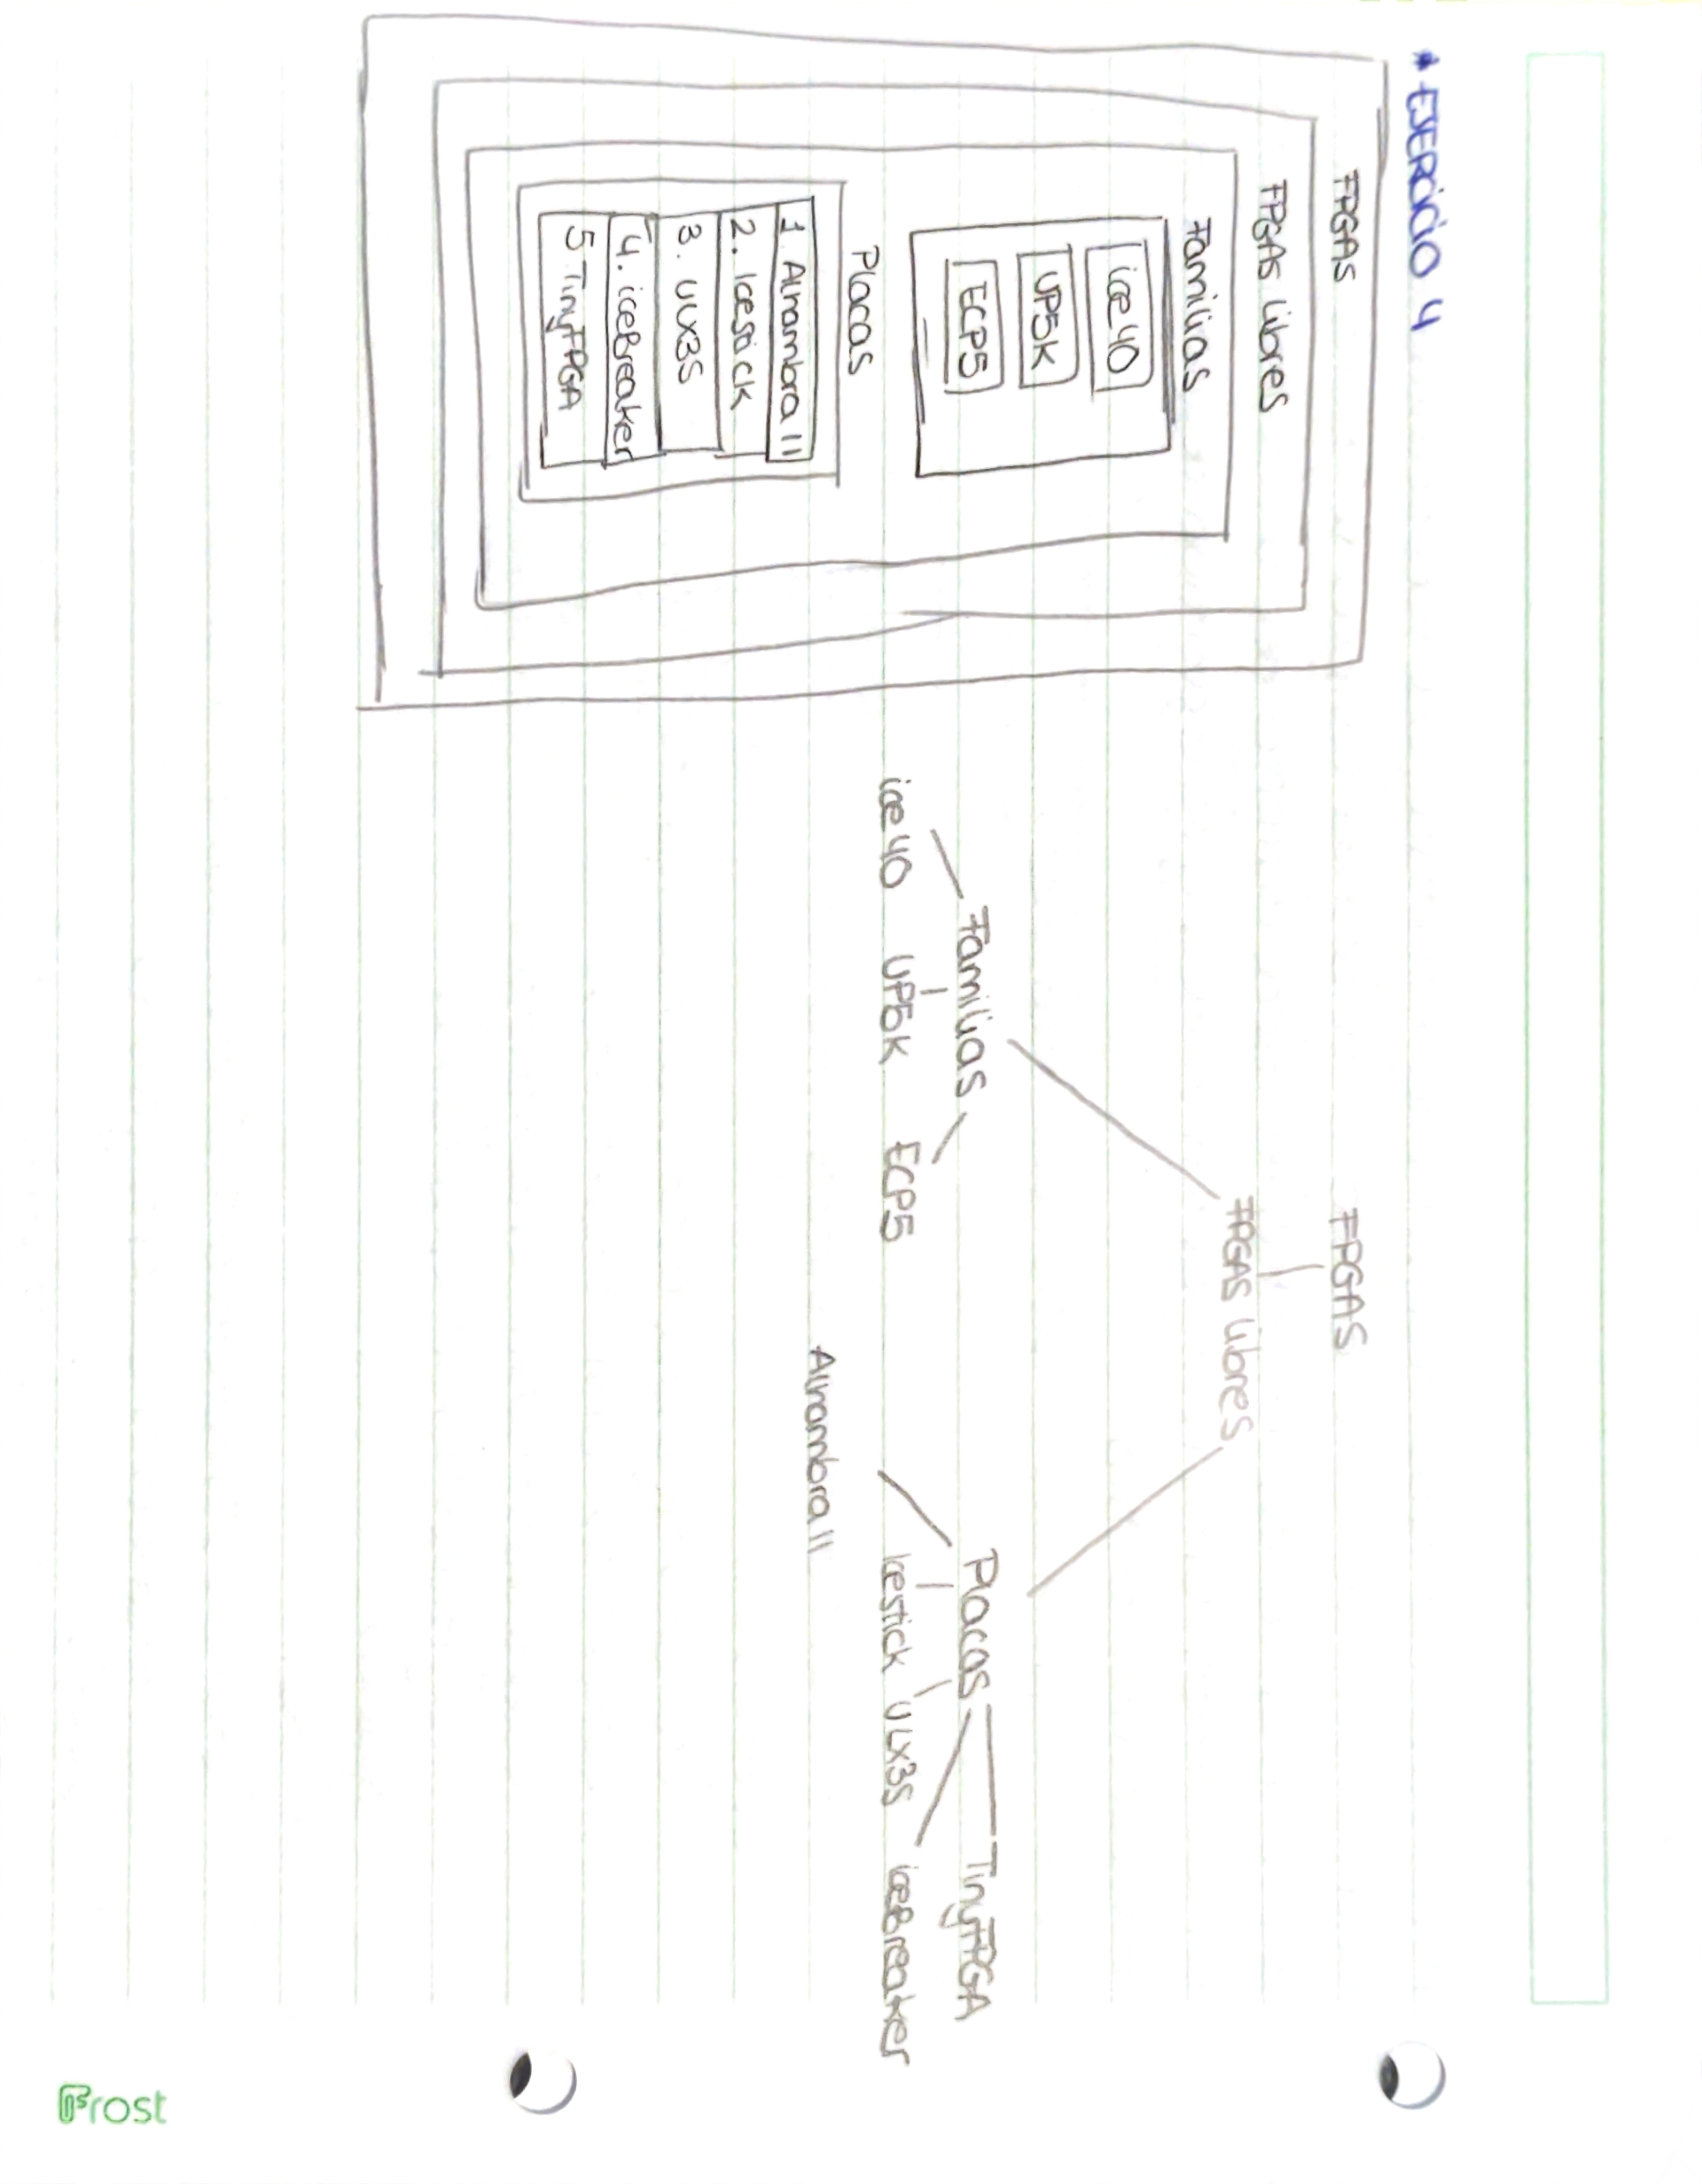 * EJERCICIO 4
FPGAS
FPGAS libres
Familias
ice40
UP5K
ECP5
Placas
1. Alhambra II
2. Icestick
3. ULX3S
4. iceBreaker
5 TinyFPGA
FPGAS
FPGAS libres
Familias
ice40 UP5K ECP5
Placas
TinyFPGA
Icestick ULX3S iceBreaker
Alhambra II
Frost